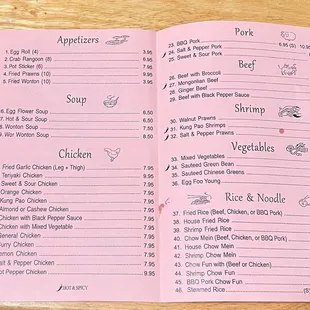 Appetizers
1. Egg Roll (4) 3.95
2. Crab Rangoon (6) 5.95
3. Pot Sticker (6) 7.95
4. Fried Prawns (10) 9.95
5. Fried Wonton (10) 3.95
Soup
6. Egg Flower Soup 6.50
7. Hot & Sour Soup 6.50
8. Wonton Soup 7.50
9. Wor Wonton Soup 8.50
Chicken
Fried Garlic Chicken (Leg + Thigh) 7.95
Teriyaki Chicken 9.95
Sweet & Sour Chicken 7.95
Orange Chicken 7.95
Kung Pao Chicken 7.95
Almond or Cashew Chicken 7.95
Chicken with Black Pepper Sauce 7.95
Chicken with Mixed Vegetable 7.95
General Chicken 7.95
Curry Chicken 7.95
Lemon Chicken 7.95
Salt & Pepper Chicken 7.95
Hot Pepper Chicken 9.95
HOT & SPICY
Pork
23. BBQ Pork 6.95 (S) 10.95
24. Salt & Pepper Pork
25. Sweet & Sour Pork
Beef
26. Beef with Broccoli
27. Mongolian Beef
28. Ginger Beef
29. Beef with Black Pepper Sauce
Shrimp
30. Walnut Prawns
31. Kung Pao Shrimps
32. Salt & Pepper Prawns
Vegetables
33. Mixed Vegetables
34. Sauteed Green Bean
35. Sauteed Chinese Greens
36. Egg Foo Young
Rice & Noodle
37. Fried Rice (Beef, Chicken, or BBQ Pork)
38. House Fried Rice
39. Shrimp Fried Rice
40. Chow Mein (Beef, Chicken, or BBQ Pork)
41. House Chow Mein
42. Shrimp Chow Mein
43. Chow Fun with (Beef or Chicken)
44. Shrimp Chow Fun
45. BBQ Pork Chow Fun
46. Steamed Rice (S)